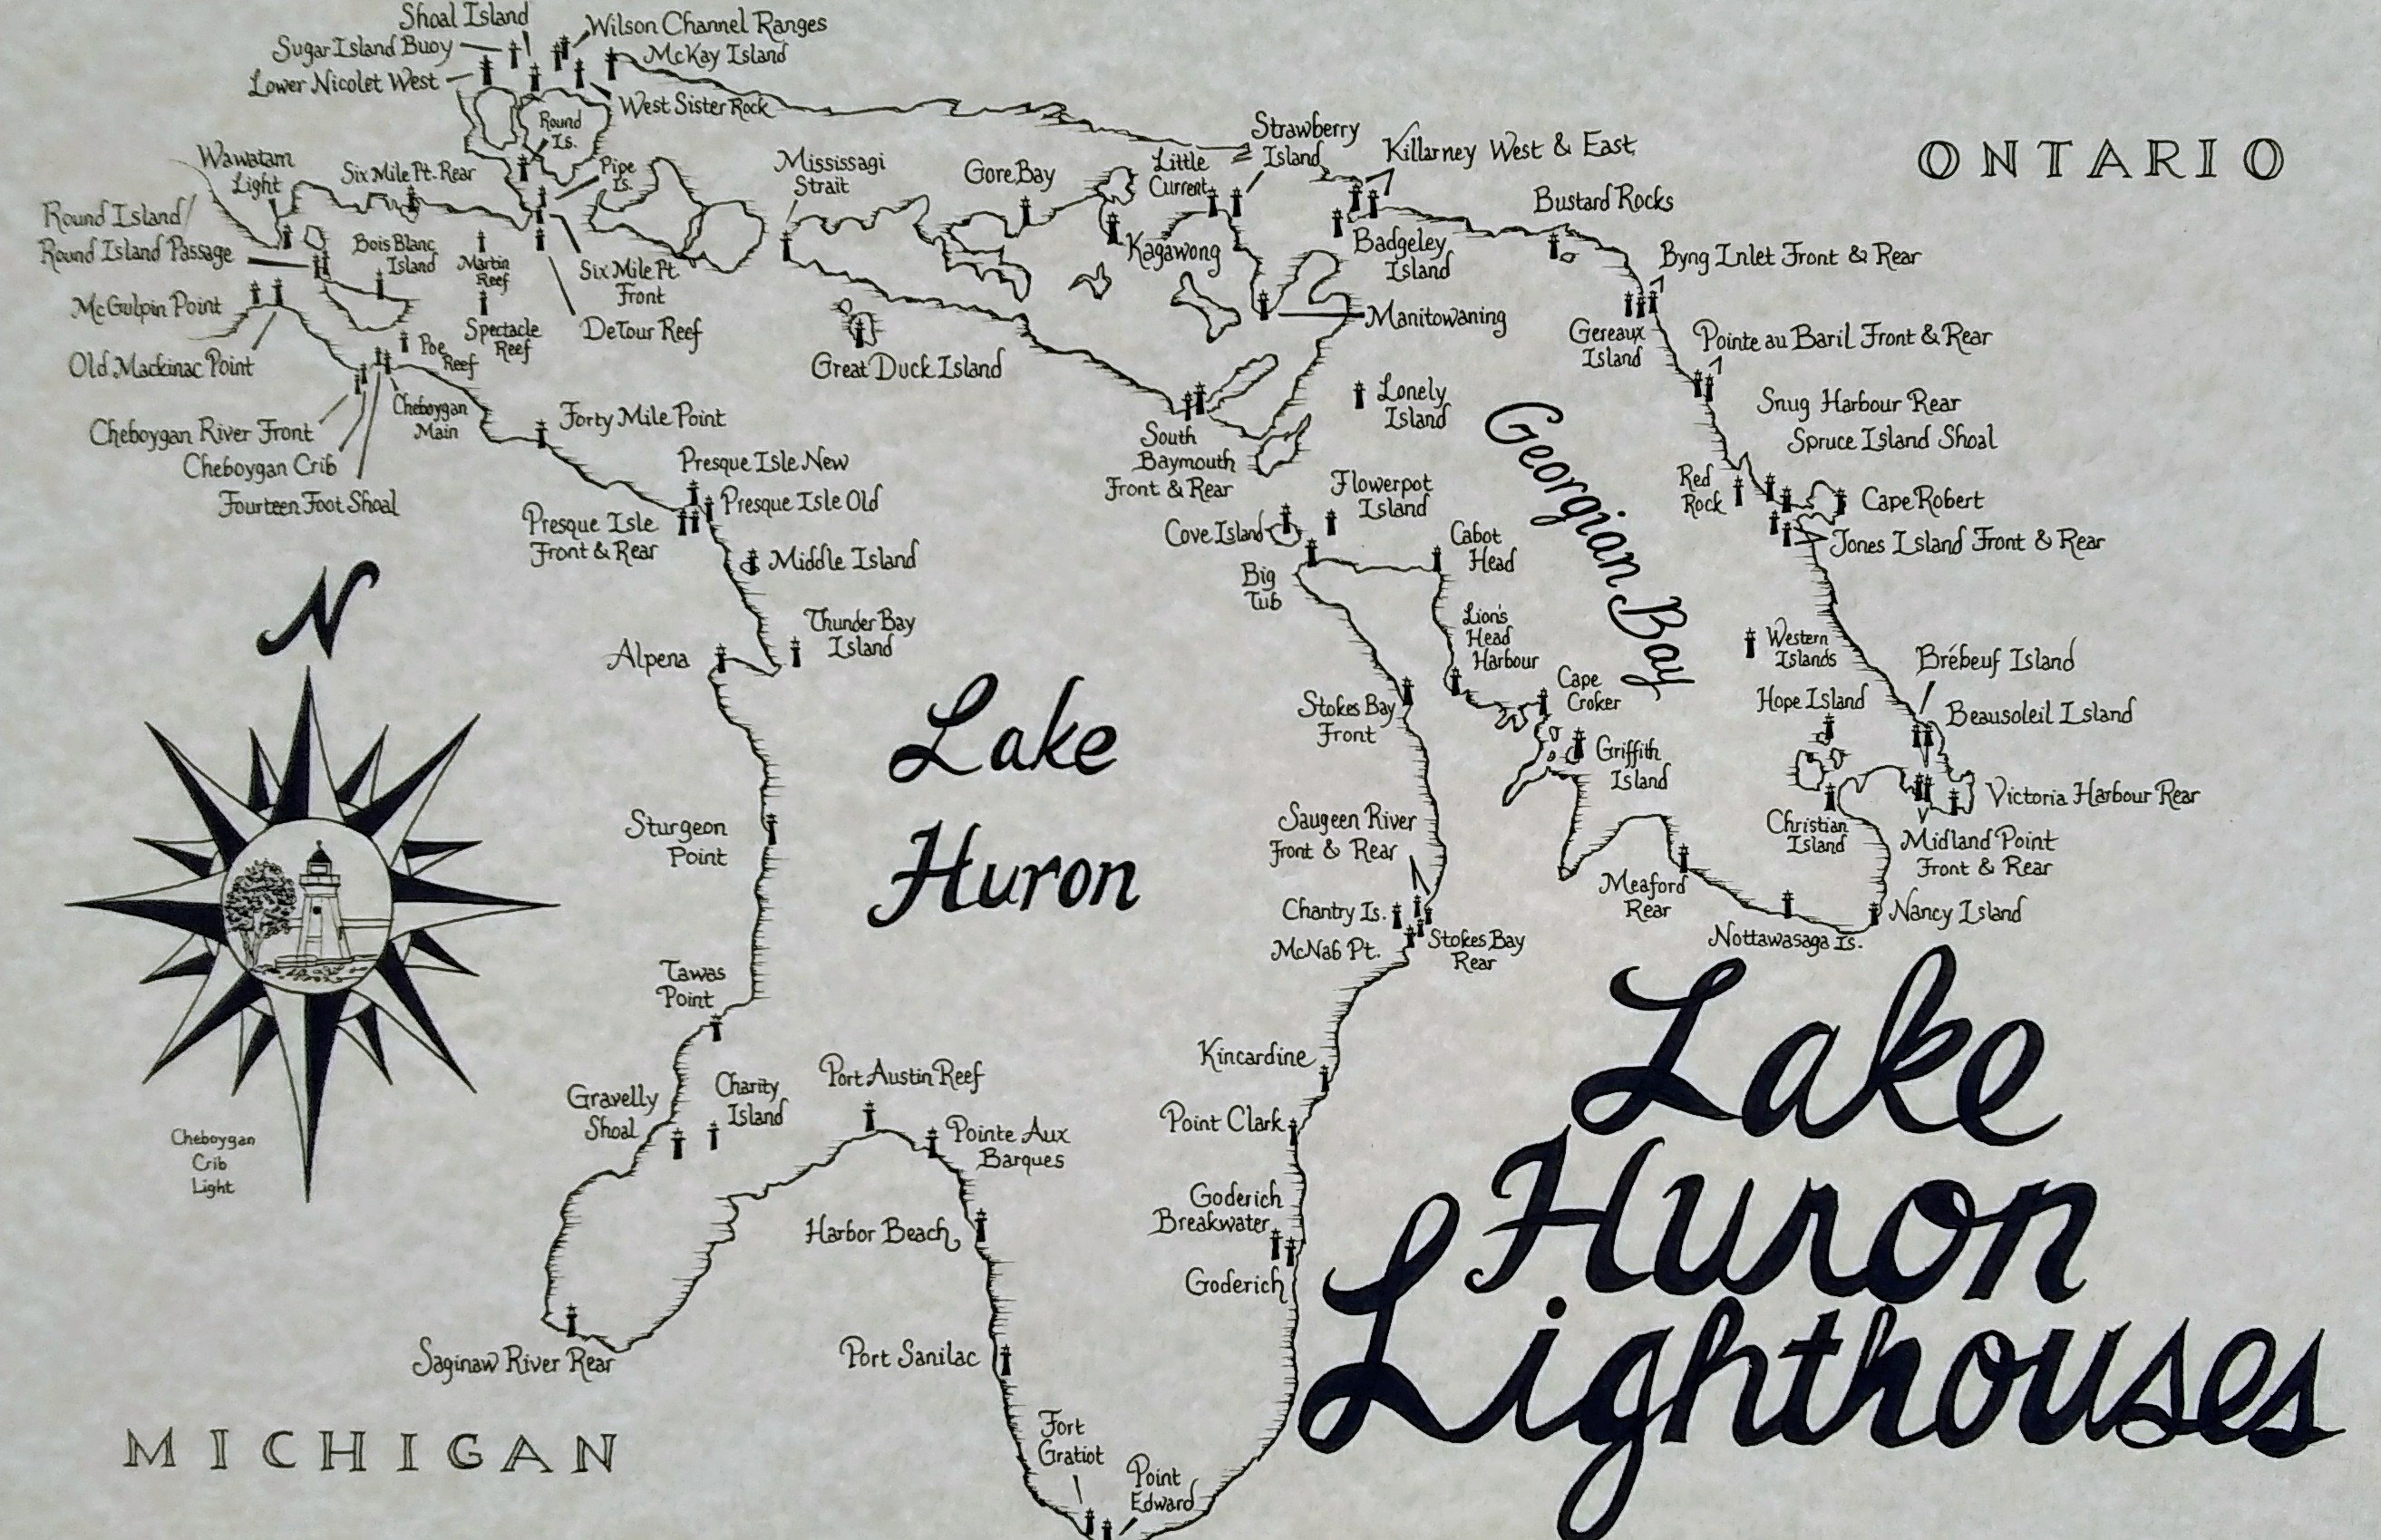 Shoal Island
Wilson Channel Ranges
Sugar Island Buoy
McKay Island
Lower Nicolet West
West Sister Rock
Round
Is.
Wawatam
Light
Six Mile Pt. Rear
Pipe
Is.
Mississagi
Strait
Gore Bay
Little
Current
Strawberry
Island
Killarney West & East
ONTARIO
Round Island/
Round Island Passage
Bois Blanc
Island
Martin
Reef
Six Mile Pt.
Front
Kagawong
Badgeley
Island
Bustard Rocks
Byng Inlet Front & Rear
McGulpin Point
Spectacle
Reef
DeTour Reef
Manitowaning
Gereaux
Island
Pointe au Baril Front & Rear
Old Mackinac Point
Poe
Reef
Great Duck Island
Lonely
Island
Snug Harbour Rear
Spruce Island Shoal
Cheboygan River Front
Cheboygan
Main
Forty Mile Point
South
Baymouth
Front & Rear
Georgian Bay
Cheboygan Crib
Fourteen Foot Shoal
Presque Isle New
Presque Isle Old
Presque Isle
Front & Rear
Flowerpot
Island
Red
Rock
Cape Robert
Cove Island
Cabot
Head
Jones Island Front & Rear
Middle Island
Big
Tub
N
Thunder Bay
Island
Alpena
Lion's
Head
Harbour
Western
Islands
Brébeuf Island
Lake
Huron
Stokes Bay
Front
Cape
Croker
Hope Island
Beausoleil Island
Griffith
Island
Sturgeon
Point
Saugeen River
Front & Rear
Christian
Island
Victoria Harbour Rear
Midland Point
Front & Rear
Chantry Is.
Meaford
Rear
Nancy Island
McNab Pt.
Stokes Bay
Rear
Nottawasaga Is.
Tawas
Point
Kincardine
Gravelly
Shoal
Charity
Island
Port Austin Reef
Pointe Aux
Barques
Point Clark
Cheboygan
Crib
Light
Harbor Beach
Goderich
Breakwater
Goderich
Saginaw River Rear
Port Sanilac
MICHIGAN
Fort
Gratiot
Point
Edward
Lake
Huron
Lighthouses